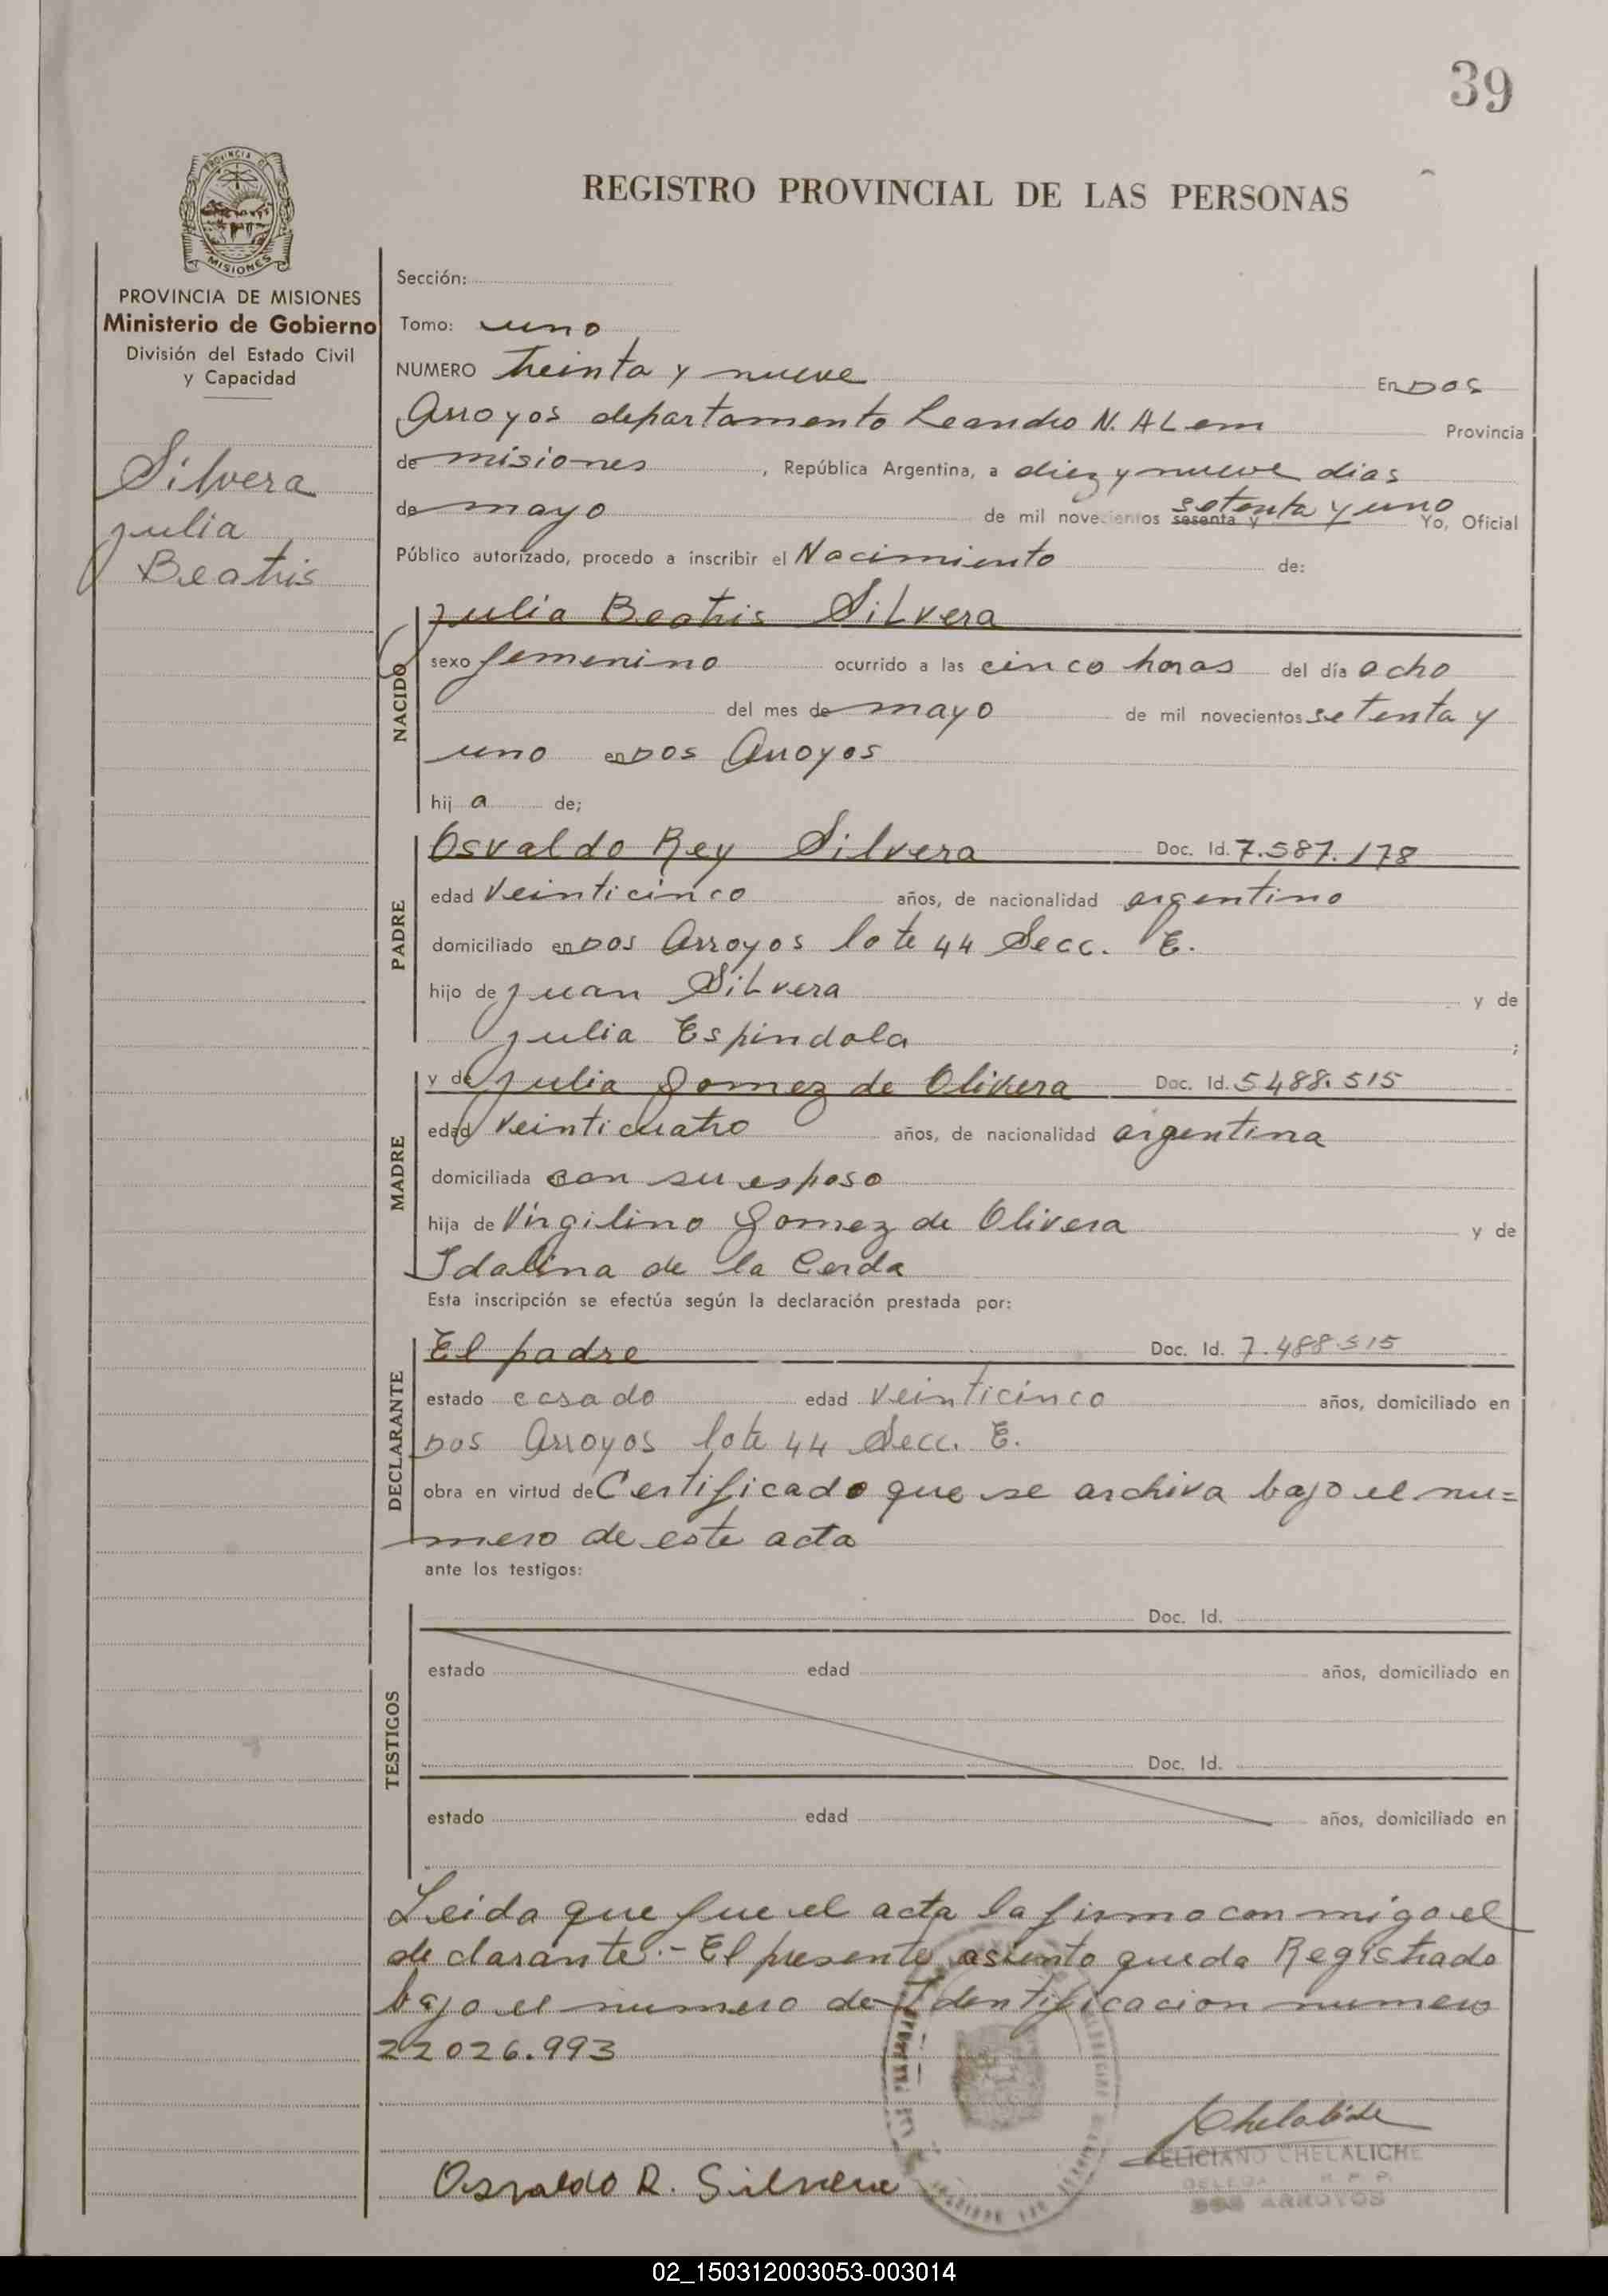 39
REGISTRO PROVINCIAL DE LAS PERSONAS
PROVINCIA DE
MISIONES
PROVINCIA DE MISIONES
Ministerio de Gobierno
División del Estado Civil
y Capacidad
Silvera
Julia
Beatris
Sección:
Tomo: uno
NUMERO Treinta y nueve En Dos
Arroyos departamento Leandro N. ALem Provincia
de misiones, República Argentina, a diez y nueve dias
de mayo de mil novecientos sesenta y setenta y uno Yo, Oficial
Público autorizado, procedo a inscribir el Nacimiento de:
NACIDO
Julia Beatris SiLvera
sexo femenino ocurrido a las cinco horas del día ocho
del mes de mayo de mil novecientos setenta y
uno en Dos Arroyos
hij a de;
PADRE
Osvaldo Rey Silvera Doc. Id. 7.587.178
edad Veinticinco años, de nacionalidad argentino
domiciliado en Dos Arroyos lote 44 Secc. E.
hijo de Juan SiLvera y de
Julia Espindola ;
MADRE
y de Julia Gomez de Olivera Doc. Id. 5488.515
edad Veinticuatro años, de nacionalidad argentina
domiciliada con su esposo
hija de Virgilino Gomez de Olivera y de
Idalina de la Cerda
Esta inscripción se efectúa según la declaración prestada por:
DECLARANTE
El padre Doc. Id. 7.488.515
estado casado edad Veinticinco años, domiciliado en
Dos Arroyos lote 44 Secc. E.
obra en virtud de Certificado que se archiva bajo el nu=
mero de este acta
ante los testigos:
TESTIGOS
Doc. Id.
estado edad años, domiciliado en
Doc. Id.
estado edad años, domiciliado en
Leida que fue el acta la firma con migo el
declarante.- El presente asiento queda Registrado
bajo el numero de Identificacion numero
22026.993
Osvaldo R. Silvera
FELICIANO CHELALICHE
R. P. P.
DOS ARROYOS
02_150312003053-003014